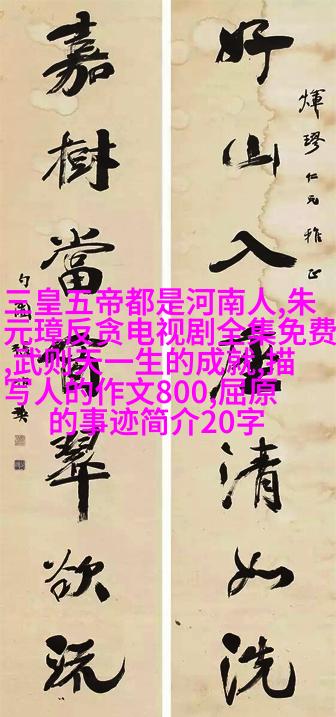 好山入清如洗
仁兄雅正
嘉樹當翠欲流
三皇五帝都是河南人,朱
元璋反贪电视剧全集免费
,武则天一生的成就,描
写人的作文800,屈原
的事迹简介20字